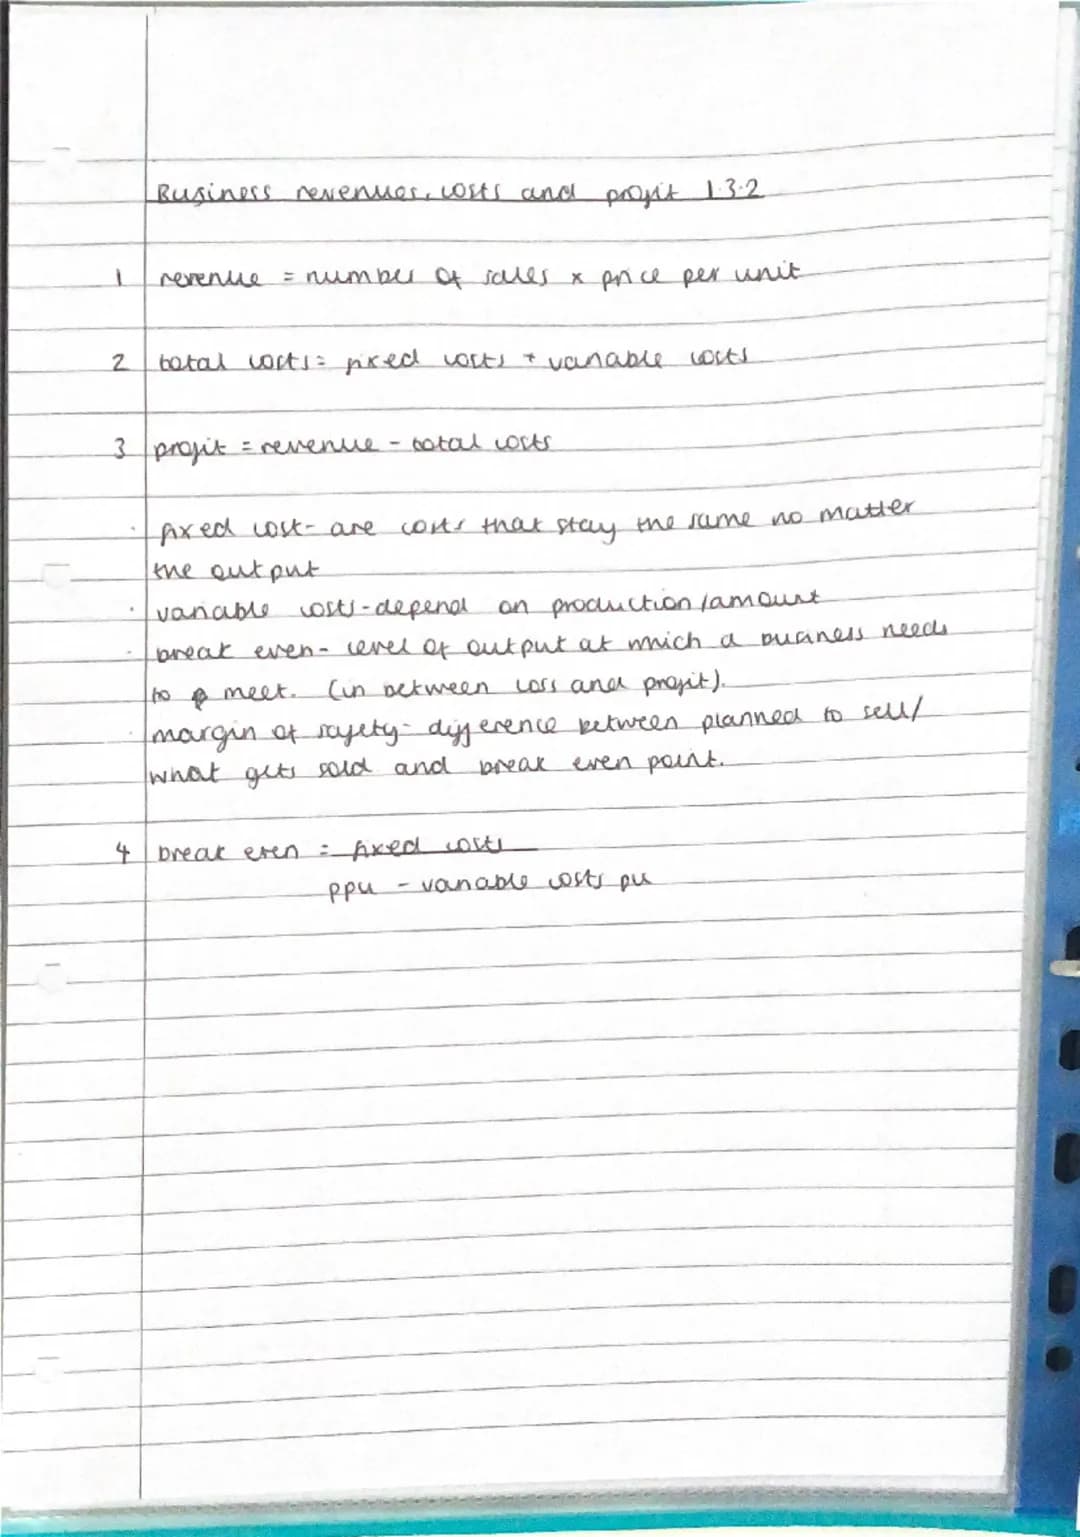 Business revenues, costs and profit 1.3.2
1 revenue = number of sales x price per unit
2 total costs = fixed costs + variable costs
3 profit = revenue - total costs
· fixed cost - are costs that stay the same no matter
the output
· variable costs - depend on production/amount
· break even - level of output at which a business needs
to meet. (in between loss and profit).
· margin of safety - difference between planned to sell/
what gets sold and break even point.
4 break even = fixed costs
ppu - variable costs pu